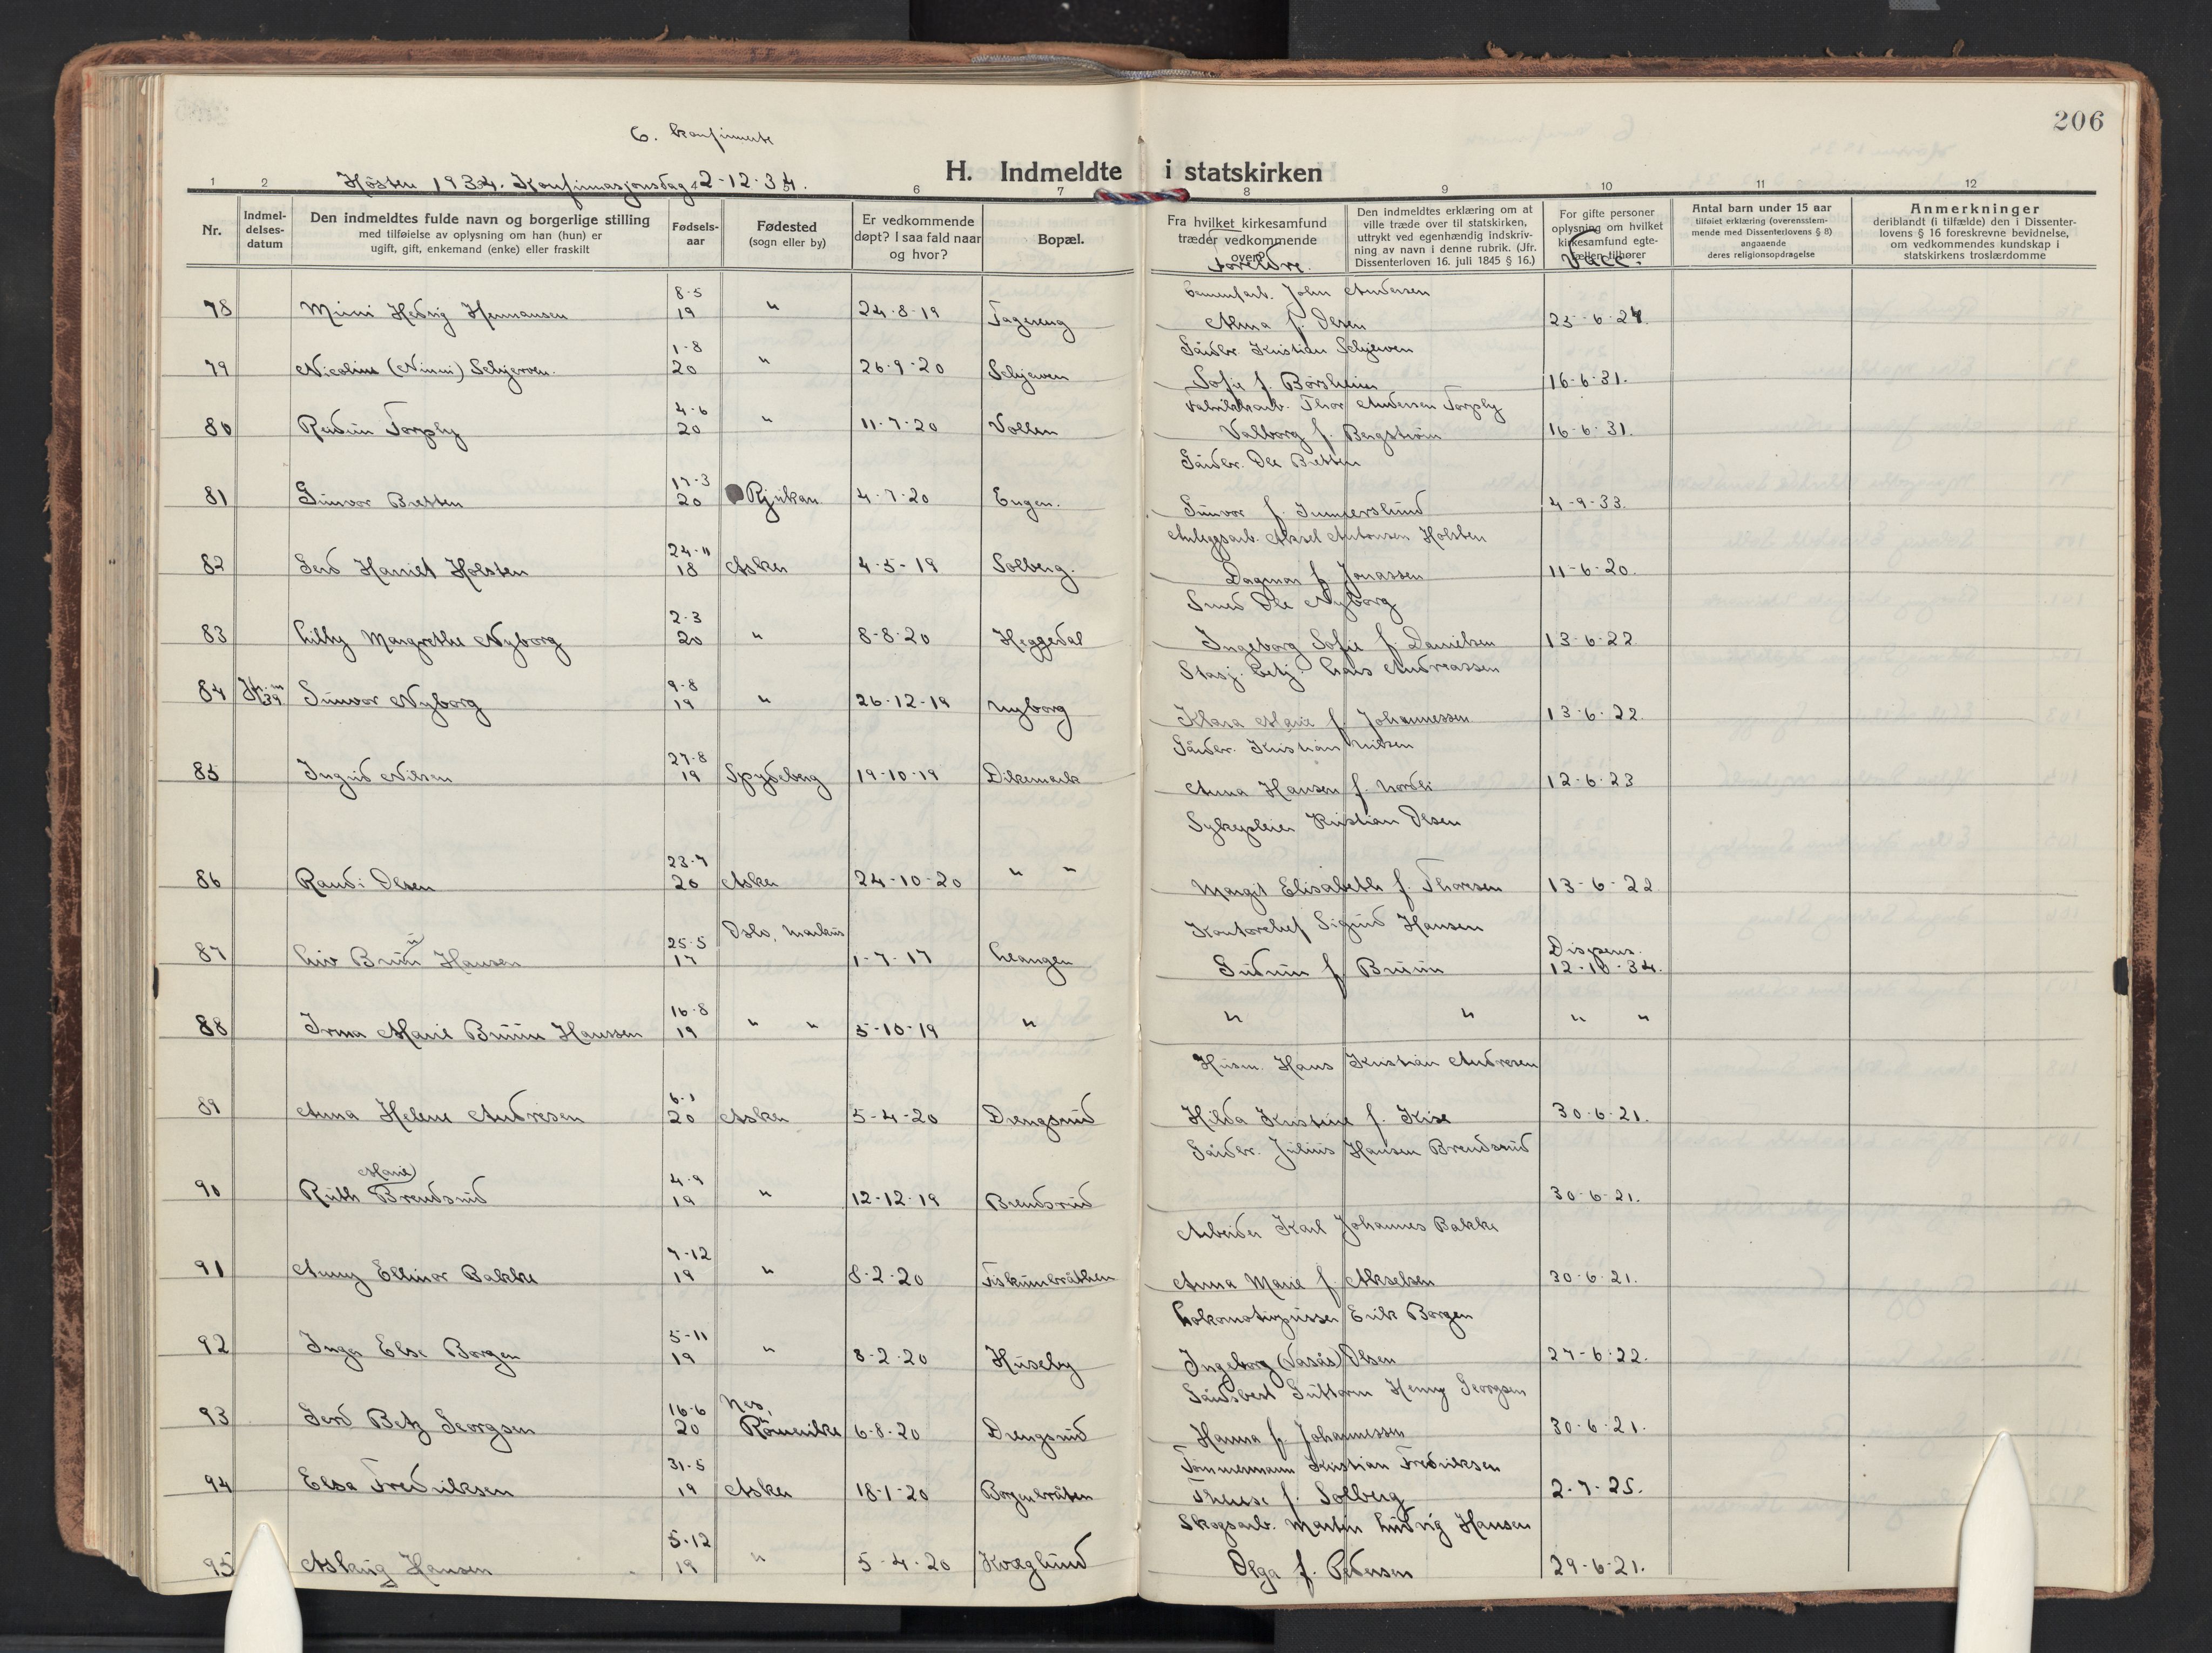 206
C. konfirmerte
H. Indmeldte i statskirken
Høsten 1934. Konfirmasjonsdag 2-12-34.
1 2 6 7 8 9 10 11 12
Nr.
Indmel-
delses-
datum
Den indmeldtes fulde navn og borgerlige stilling
med tilføielse av oplysning om han (hun) er
ugift, gift, enkemand (enke) eller fraskilt
Fødsels-
aar
Fødested
(sogn eller by)
Er vedkommende
døpt? I saa fald naar
og hvor?
Bopæl.
Fra hvilket kirkesamfund
træder vedkommende
over?
Foreldre.
Den indmeldtes erklæring om at
ville træde over til statskirken,
uttrykt ved egenhændig indskriv-
ning av navn i denne rubrik. (Jfr.
Dissenterloven 16. juli 1845 § 16.)
For gifte personer
oplysning om hvilket
kirkesamfund egte-
fællen tilhører
Vacc.
Antal barn under 15 aar
tilføiet erklæring (overensstem-
mende med Dissenterlovens § 8)
angaaende
deres religionsopdragelse
Anmerkninger
deriblandt (i tilfælde) den i Dissenter-
lovens § 16 foreskrevne bevidnelse,
om vedkommendes kundskap i
statskirkens troslærdomme
8-5 Cementarb. John Andersen
78 Mimi Hedvig Hermansen 19 " 24-8-19 Fagereng Alma f. Olsen 25-6-24.
1-8 Gårdbr. Kristian Schjerven
79 Nicoline (Ninni) Schjerven. 20 " 26-9-20 Schjerven Sofie f. Børsheim 16-6-31.
4-6 Fabrikkarb. Thor Andersen Torply
80 Reidun Torply 20 " 11-7-20 Vollen Valborg f. Bergstrøm 16-6-31.
17-3 Gårdbr. Ole Bratten
81 Gunvor Bratten 20 Rjukan 4-7-20 Engen. Gunvor f. Gunnerslund 4-9-33.
24-11 Anleggsarb. Aksel Antonsen Holsten
82 Gerd Harriet Holsten 18 Asker 4-5-19 Solberg. Dagmar f. Jonassen 11-6-20.
2-3 Smed Ole Nyborg
83 Lilly Margrethe Nyborg 20 " 8-8-20 Heggedal Ingeborg Sofie f. Danielsen 13-6-22
9-8 Stasj. betj. Lars Andreassen
84 Gunvor Nyborg 19 " 26-12-19 Nyborg Klara Marie f. Johannessen 13-6-22.
27-8 Gårdbr. Kristian Nilsen
85 Ingrid Nilsen 19 Spydeberg 19-10-19 Dikemark Anna Hansen f. Nordli 12-6-23
23-7 Sykepleier Kristian Olsen
86 Randi Olsen 20 Asker 24-10-20 " " Margit Elisabeth f. Thoresen 13-6-22
25-5 Oslo, Markus Kontorchef Sigurd Hansen Dispens.
87 Liv Bruun Hansen 17 1-7-17 Leangen Gudrun f. Bruun 12-10-34.
16-8
88 Irma Marie Bruun Hanssen 19 " " 5-10-19 " " " " "
6-1 Husm. Hans Kristian Andresen
89 Anna Helene Andresen 20 Asker 5-4-20 Drengsrud Hilda Kristine f. Kise 30-6-21.
Marie 4-9 Gårdbr. Julius Hansen Brendsrud
90 Ruth Brendsrud 19 " 12-12-19 Brendsrud 30-6-21.
7-12 Arbeider Karl Johannes Bakke
91 Anny Ellinor Bakke 19 " 8-2-20 Fiskumbråthen Anna Marie f. Akselsen 30-6-21.
5-11 Lokomotivpusser Erik Borgen
92 Inger Else Borgen 19 " 8-2-20 Huseby Ingeborg (Vasås) Olsen 27-6-22.
16-6 Nes, Gårdsbest Guttorm Henry Georgsen
93 Gerd Betz Georgsen 20 Romerike 6-8-20 Drengsrud Hanna f. Johannessen 30-6-21.
31-5 Tømmermann Kristian Fredriksen
94 Elsa Fredriksen 19 Asker 18-1-20 Borgenbråten Therese f. Solberg 2-7-25.
5-12 Skogsarb. Martin Ludvig Hansen
95 Aslaug Hansen 19 " 5-4-20 Kraglund Olga f. Pedersen 29-6-21.